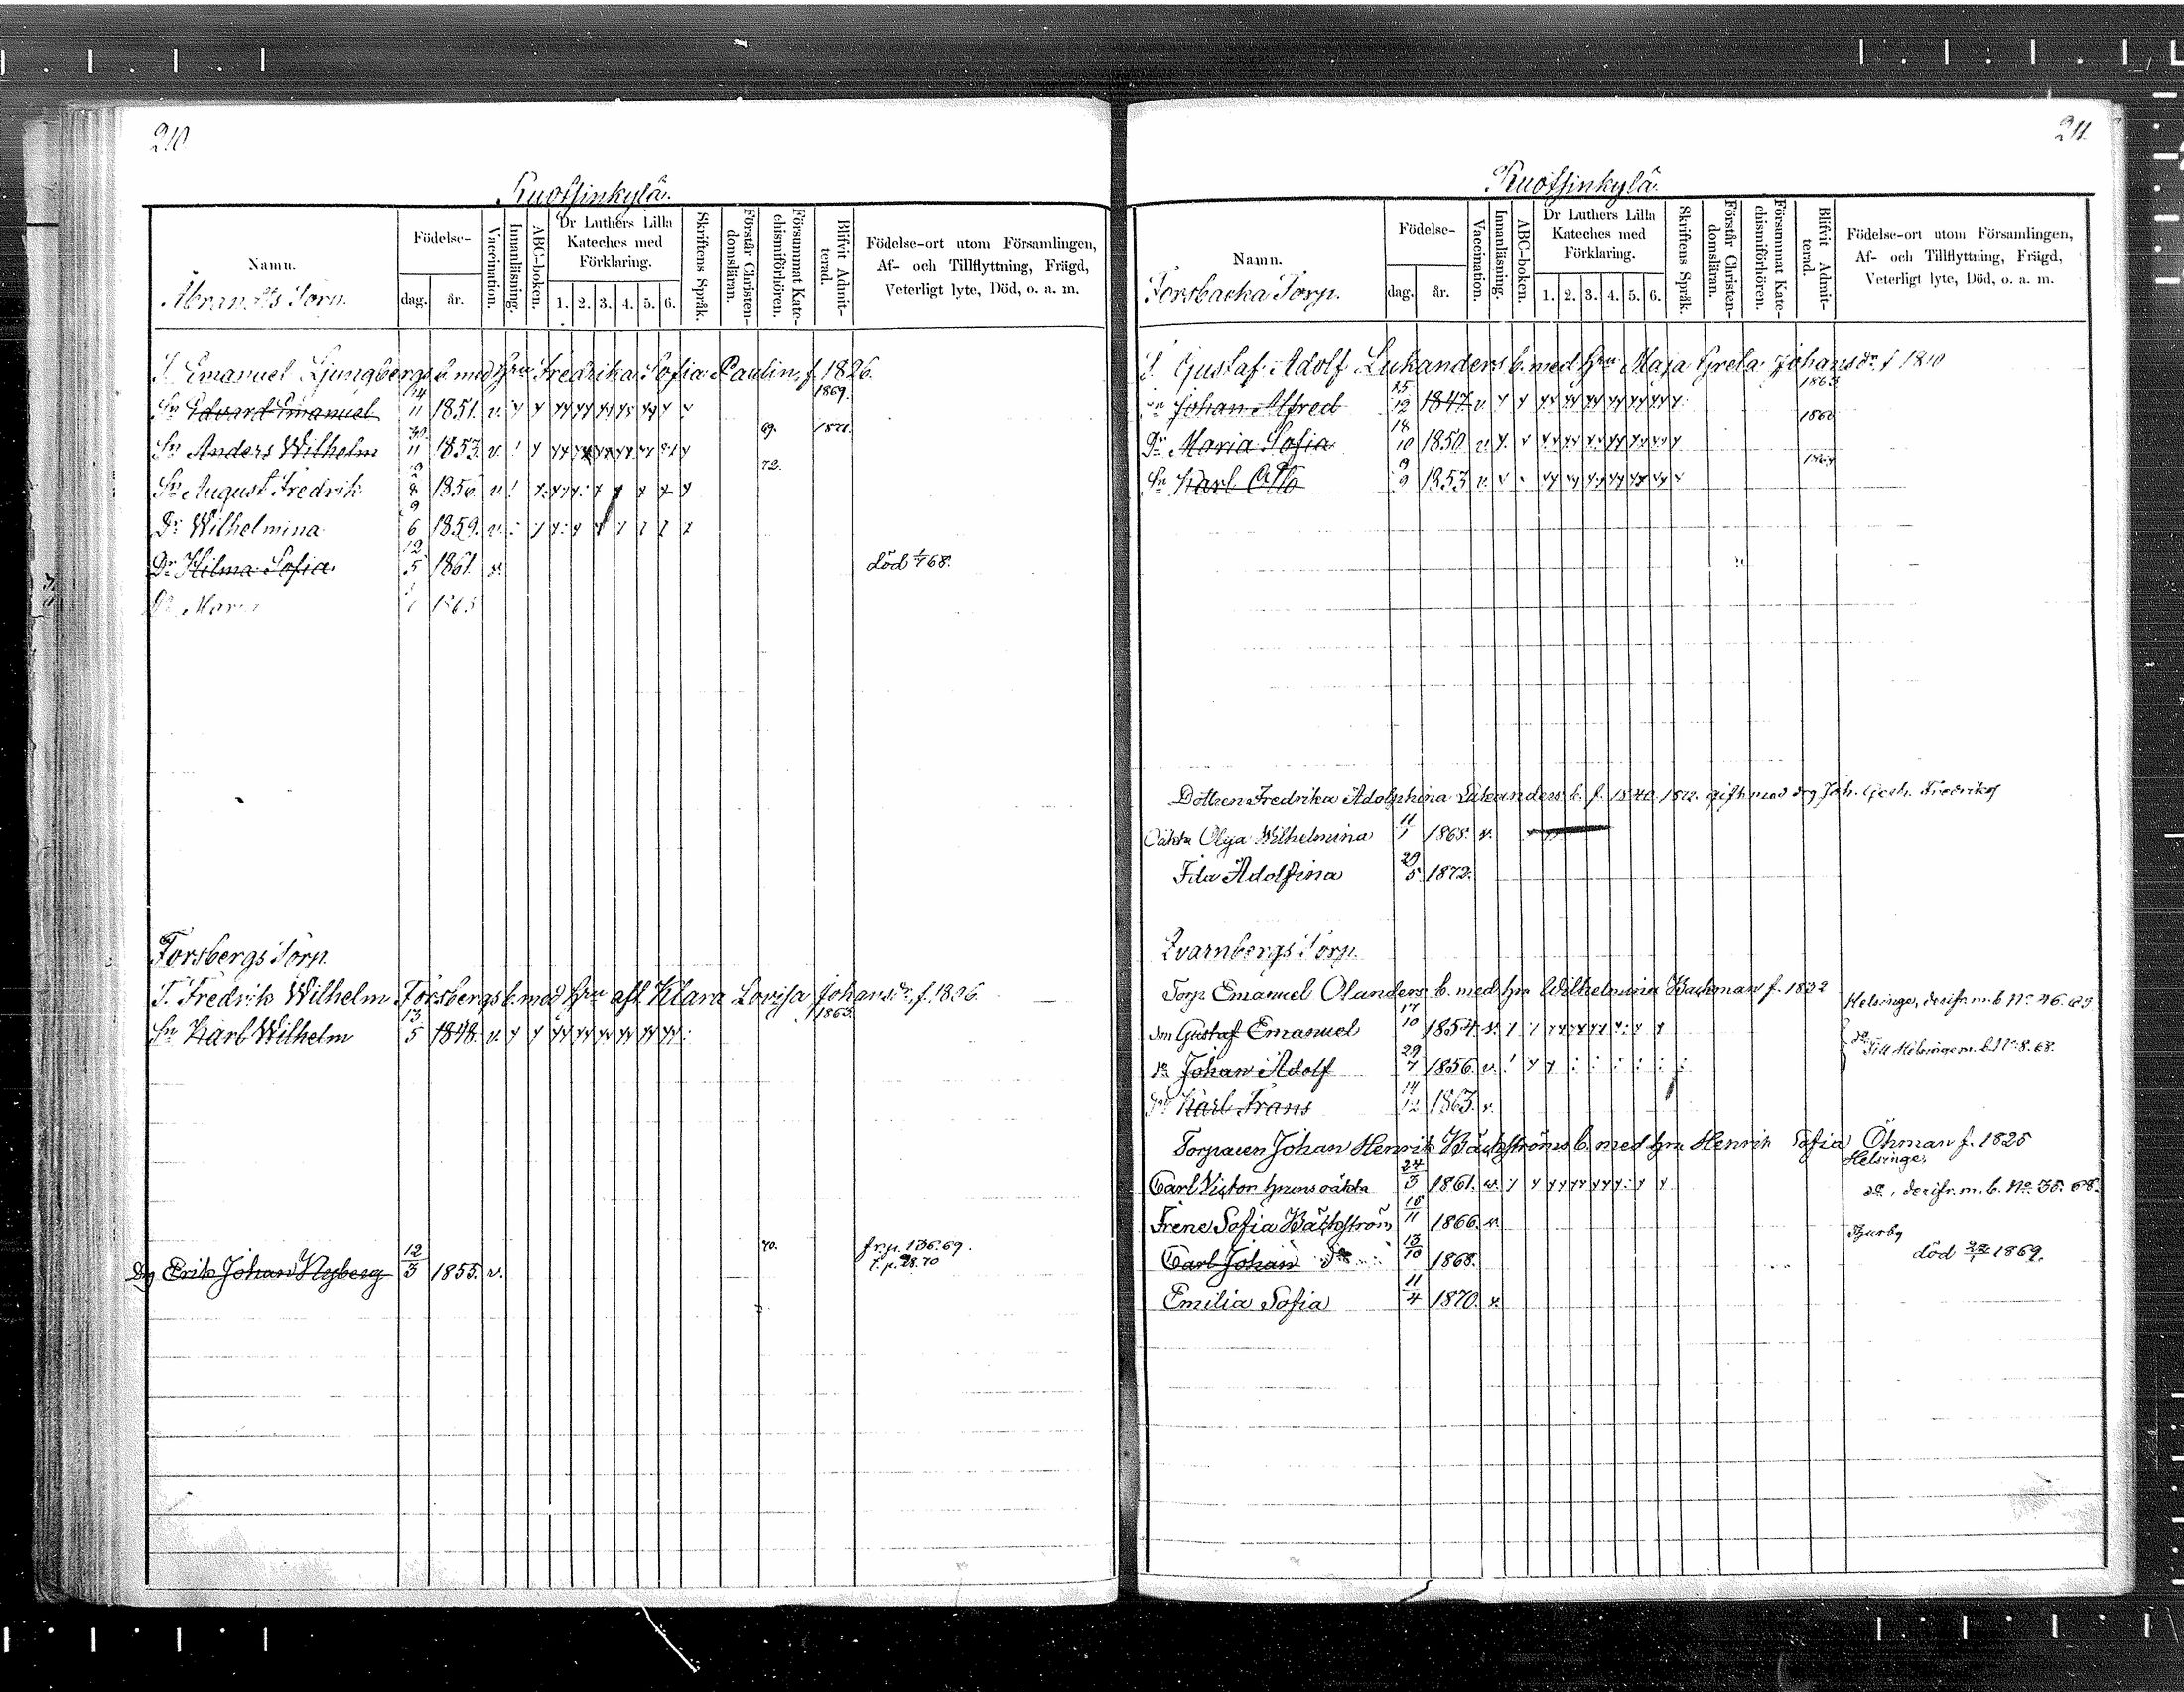 210
Ruotsinkylä.
Namn.
Födelse-
dag.
år.
Vaccination.
Innanläsning.
ABC-boken.
Dr Luthers Lilla
Kateches med
Förklaring.
1. 2. 3. 4. 5. 6.
Skriftens Språk.
Förstår Christen-
domsläran.
Försummat Kate-
chismiförhören.
Blifvit Admit-
terad.
Födelse-ort utom Församlingen,
Af- och Tillflyttning, Frägd,
Veterligt lyte, Död, o. a. m.
Torp.
T. Emanuel Ljungbergs b. med hru Fredrika Sofia Paulin, f. 1826.
Sn Edvard Emanuel 11 1851. v. 1869.
Sn Anders Wilhelm 30 11 1853. v. 69. 1871.
Sn August Fredrik 8 1856. v. 72.
Dr Wilhelmina 9 6 1859. v.
Dr Hilma Sofia 12 5 1861. v. död 68.
Dr Maria 1865
Forsbergs Torp.
T. Fredrik Wilhelm Forsbergs b. med hru afl. Klara Lovisa Johansdr. f. 1826.
Sn Karl Wilhelm 13 5 1848. v. 1865.
Drg Erik Johan Nyberg 12 3 1855. v. 70. fr. p. 136. 69.
t. p. 28. 70
211.
Ruotsinkylä.
Namn.
Födelse-
dag.
år.
Vaccination.
Innanläsning.
ABC-boken.
Dr Luthers Lilla
Kateches med
Förklaring.
1. 2. 3. 4. 5. 6.
Skriftens Språk.
Förstår Christen-
domsläran.
Försummat Kate-
chismiförhören.
Blifvit Admit-
terad.
Födelse-ort utom Församlingen,
Af- och Tillflyttning, Frägd,
Veterligt lyte, Död, o. a. m.
Forsbacka Torp.
T. Gustaf Adolf Lukanders b. med hru Maja Greta Johansdr. f. 1810
Sn Johan Alfred 15 12 1847 v. 1863
Dr Maria Sofia 18 10 1850 v.
Sn Karl Otto 9 9 1853 v.
Dottren Fredrika Adolphina Lukanders b. f. 1840. 1872. gift med drg Joh.
Oäkta Olga Wilhelmina 11 1 1868. v.
Adolfina 29 5 1872.
Qvarnbergs Torp.
Torp. Emanuel Olanders b. med hru Wilhelmina Backman f. 1832 Helsinge, derifr. m. b. No 46.
Son Gustaf Emanuel 17 10 1854. v.
do Johan Adolf 29 7 1856. v. Till Helsinge m. b. No 8. 68.
Karl Frans 14 12 1863. v.
Torparen Johan Henrik Bäckströms b. med hru Henrik Sofia Öhman f. 1825
Helsinge,
Carl Victor hruns oäkta 24 3 1861. v. do, derifr. m. b. No 35. 68.
Irene Sofia Bäckström 16 11 1866. v.
Carl Johan do 13 10 1868. död 1869.
Emilia Sofia 11 4 1870. v.